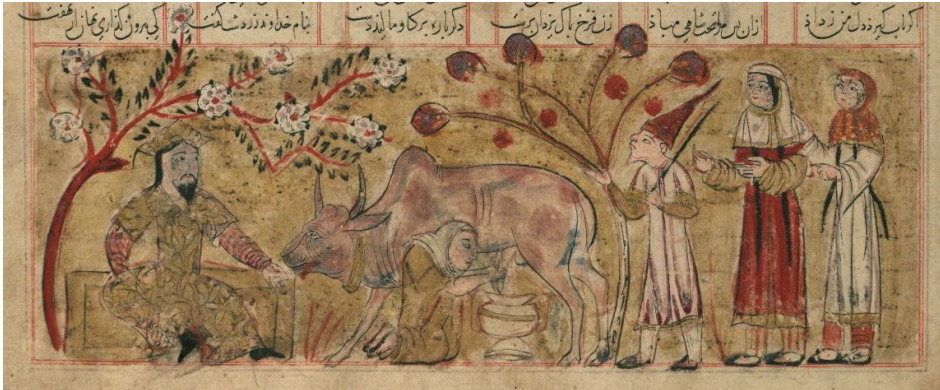 کرتاب کیرد دل من ز داد ازان پس مرا تخت شاهی مباذ زن فرخ پاک یزدان پرست دکرباره بر کاو مالید دست بنام خداوند زردشت کفت کی بیرون کذاری نهان از نهفت